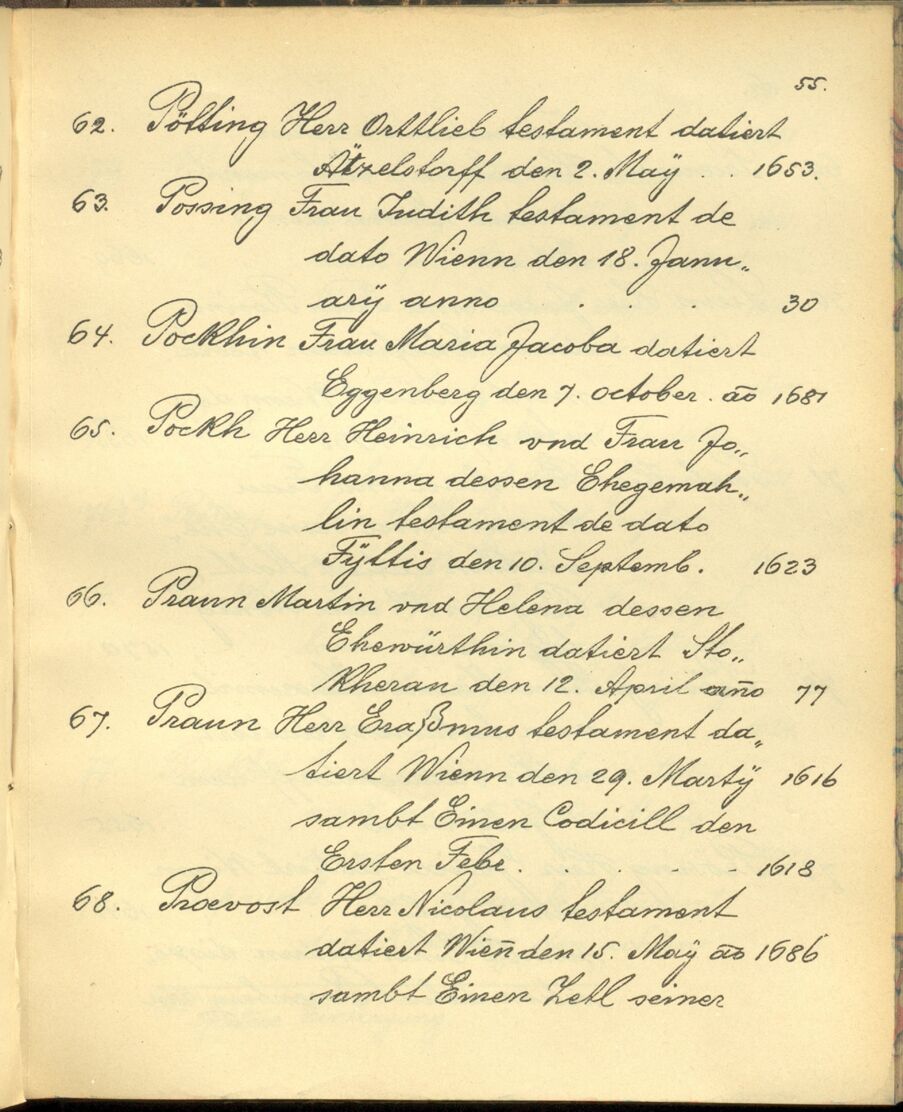 55.
62. Pötting Herr Orttlieb testament datiert
Ätzelstorff den 2. Maÿ . . 1653.
63. Possing Frau Judith testament de
dato Wienn den 18. Janu„
arÿ anno . . 30
64. Pockhin Frau Maria Jacoba datiert
Eggenberg den 7. october . ao 1681
65. Pockh Herr Heinrich vnd Frau Jo„
hanna dessen Ehegemah„
lin testament de dato
Fÿllis den 10. Septemb. 1623
66. Praun Martin vnd Helena dessen
Ehewürthin datiert Sto„
kherau den 12. April anno 77
67. Praun Herr Eraßmus testament da„
tiert Wienn den 29. Martÿ 1616
sambt Einen Codicill den
Ersten Febr . . . - - 1618
68. Praevost Herr Nicolaus testament
datiert Wien̄ den 15. Maÿ ao 1686
sambt Einen Zetl seiner